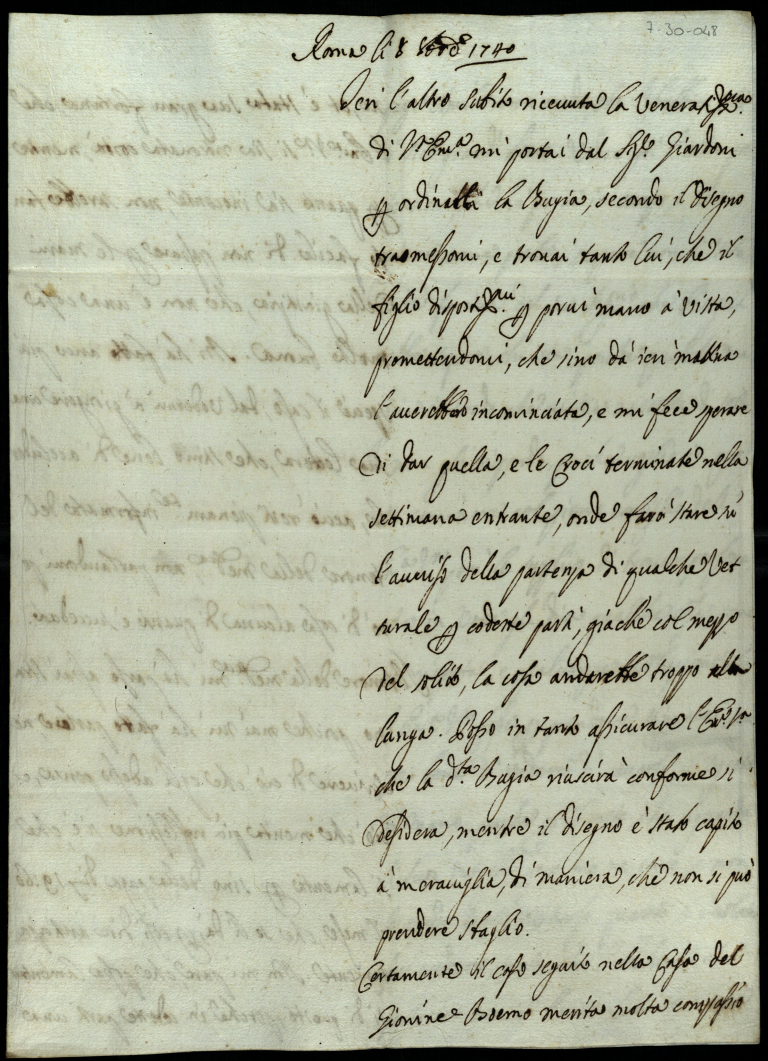 7-30-048
Roma li 8 1740
Ieri l'altro subito riceuuta la Veneratis.ma
di V.Em.a mi portai dal Sig.e Giardoni
p ordinalli la Bugia, secondo il disegno
trasmessomi, e trouai tanto lui, che il
figlio dispostis.mi p porui mano à vista,
promettendomi, che sino da ieri mattina
l'auerebbero incominciata, e mi fece sperare
di dar quella, e le Croci terminate nella
settimana entrante, onde farò stare sù
l'auuiso della partenza di qualche Vet
turale p codeste parti, giache col mezzo
del solito, la cosa andarebbe troppo alla
lunga. Posso in tanto assicurare l'Em.a V.a
che la d.ta Bugia riuscirà conforme si
desidera, mentre il disegno è stato capito
à merauiglia, di maniera, che non si può
prendere sbaglio.
Certamente il caso seguito nella Casa del
Giouine Boemo merita molta compassio